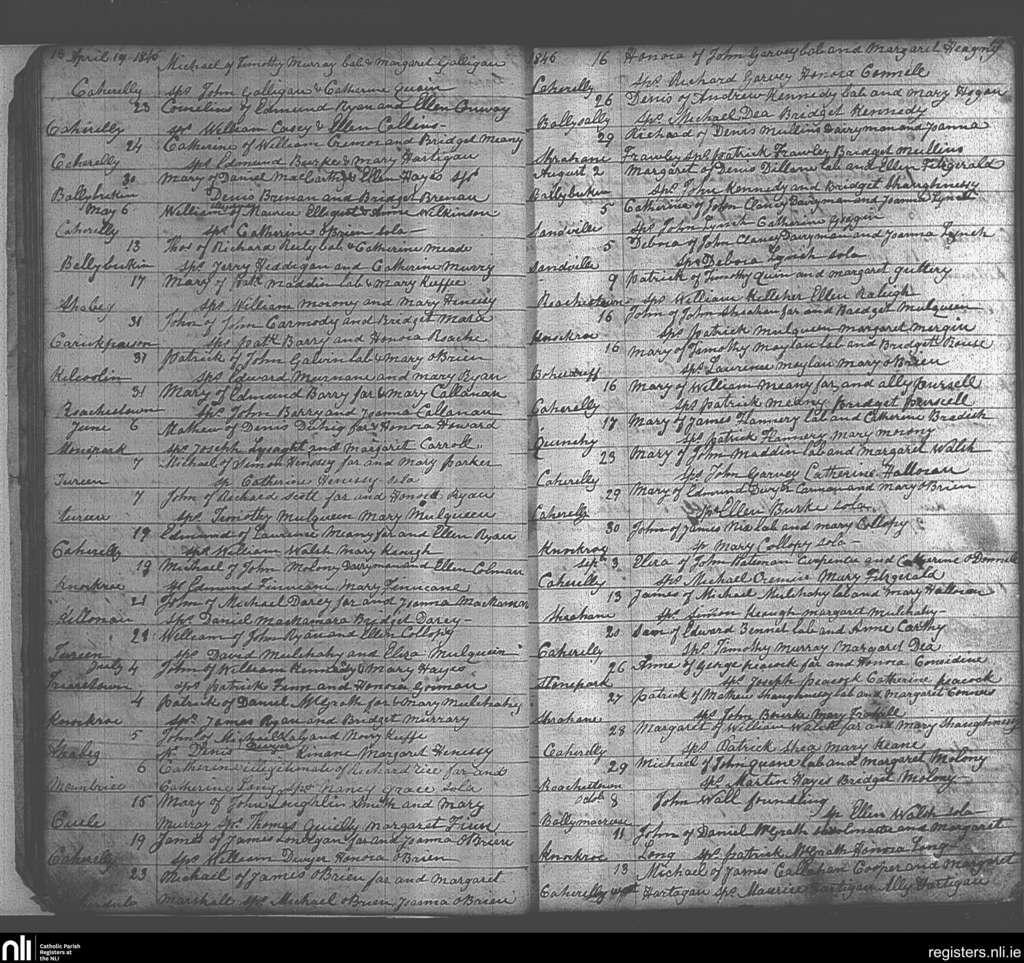 18 April 19 1846 Michael of Timothy Murray lab & Margaret Galligan
Caherelly Sps John Galligan & Catherine Quain
23 Cornelius of Edmund Ryan and Ellen Conway
Caherelly sps William Casey & Ellen Collins
24 Catherine of William Cremon and Bridget Meany
Caherelly sps Edmund Burke & Mary Hartigan
30 Mary of Daniel MacCarthy & Ellen Hayes sps
Ballybrikin Denis Brenan and Bridget Brenan
May 6 William of Maurice Elligott & Anne Wilkinson
Caherelly sps Catherine OBrien sola
13 Thos of Richard Realy lab & Catherine Meade
Ballybrikin sps Jerry Heddigan and Catherine Murry
17 Mary of Patk Maddin lab & Mary Keeffe
sps William Morony and Mary Henessy
31 John of John Carmody and Bridget Mara
sps Patk Barry and Honora Roache
31 Patrick of John Galvin lab & Mary OBrien
Kilcoolin sps Edward Murnane and Mary Ryan
31 Mary of Edmund Barry far & Mary Callanan
Roachestown sps John Barry and Joanna Callanan
June 6 Mathew of Denis far & Honora Heward
Stonepark sps Joseph Lysaght and Margaret Carroll
7 Michael of Simon Henessy far and Mary Parker
Tureen sp Catherine Henessy sola
7 John of Richard Scott far and Honora Ryan
Tureen sps Timothy Mulqueen Mary Mulqueen
19 Edmund of Laurence Meany far and Ellen Ryan
Caherelly sps William Walsh Mary Keough
19 Michael of John Molony Dairyman and Ellen Colman
Knockroe sps Edmund Finucane Mary Finucane
21 John of Michael Darcy far and Joanna Mackamara
Killonan sps Daniel Mackamara Bridget Darcy
21 William of John Ryan and Ellen Collopy
Tureen sps David Mulchahy and Eliza Mulqueen
July 4 John of William Kennedy & Mary Hayes
Friarstown sps Patrick Finn and Honora Gorman
4 Patrick of Daniel McGrath far & Mary Mulchahy
Knockroe sps James Ryan and Bridget Murrary
5 John of Michael lab and Mary Keeffe
sp Denis Dwyer Kinane Margaret Henessy
6 Catherine illegitimate of Richard rise far and
Catherine Long sps Nancy Grace sola
15 Mary of John Loughlin Smith and Mary
Murray sps Thomas Quilty Margaret Finn
19 James of James Londrgan far and Joanna OBrien
Caherelly sps William Dwyer Honora OBrien
23 Michael of James OBrien far and Margaret
Marshall sps Michael OBrien Joanna OBrien
1846 16 Honora of John Garvey lab and Margaret Heagney
Caherelly sps Richard Garvey Honora Connell
26 Denis of Andrew Kennedy lab and Mary Hogan
Ballysally sps Michael Dea Bridget Kennedy
29 Richard of Denis Mullins dairyman and Joanna
Skrahane Frawley sps Patrick Frawley Bridget Mullins
August 2 Margaret of Denis Dillane lab and Ellen Fitzgerald
Ballybrikin sps John Kennedy and Bridget Shaughnessy
5 Catherine of John Clancy Dairyman and Joanna Lynch
Sandville sps John Lynch Catherine Goggin
5 Debora of John Clancy Dairyman and Joanna Lynch
Sandville sps Debora Lynch sola
9 Patrick of Timothy Quin and Margaret Guttery
Roachestown sps William Kelleher Ellen Raleigh
16 John of John Sheahan far and Bridget Mulqueen
Knockroe sps Patrick Mulqueen Margaret Mergin
16 Mary of Timothy Moylan lab and Bridget Rouse
sps Laurence Moylan Mary OBrien
16 Mary of William Meany far and Ally Pursell
Caherelly sps Patrick Meany Bridget Purscell
17 Mary of James Flannery lab and Catherine Bradish
sps Patrick Flannery Mary Morony
23 Mary of John Maddin lab and Margaret Walsh
Caherelly sps John Garvey Catherine Halloran
29 Mary of Edmund Dwyer Carman and Mary OBrien
Caherelly sp Ellen Burke sola
30 John of James Nix lab and Mary Collopy
Knockroy sp Mary Collopy sola
sept 3 Eliza of John Bateman Carpenter and Catherine ODonnell
Caherelly sps Michael Cremin Mary Fitzgerald
13 James of Michael Mulchahy lab and Mary Halloran
Skrahane sps Simon Keough Margaret Mulchahy
20 of Edward Bennet lab and Anne Carthy
Caherelly sps Timothy Murray Margaret Dea
26 Anne of George Peacock far and Honora Considine
Stonepark sps Joseph Peacock Catherine Peacock
27 Patrick of Mathew Shaughnessy lab and Margaret Connors
Skrahane sps John Bourke Mary
28 Margaret of William Walsh far and Mary Shaughnessy
Caherelly sps Patrick Shea Mary Keane
29 Michael of John Quane lab and Margaret Molony
Roachestown sps Martin Hayes Bridget Molony
Octr 8 John Wall foundling
sp Ellen Walsh sola
11 John of Daniel McGrath schoolmaster and Margaret
Knockroe Long sps Patrick McGrath Honora Long
13 Michael of James Callahan Cooper and Margaret
Caherelly west Hartagan sps Maurice Hartigan Ally Hartigan
nli
Catholic Parish
Registers at
the NLI
registers.nli.ie